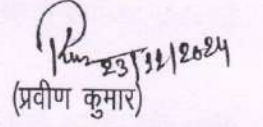 23/12/2024
(प्रवीण कुमार)